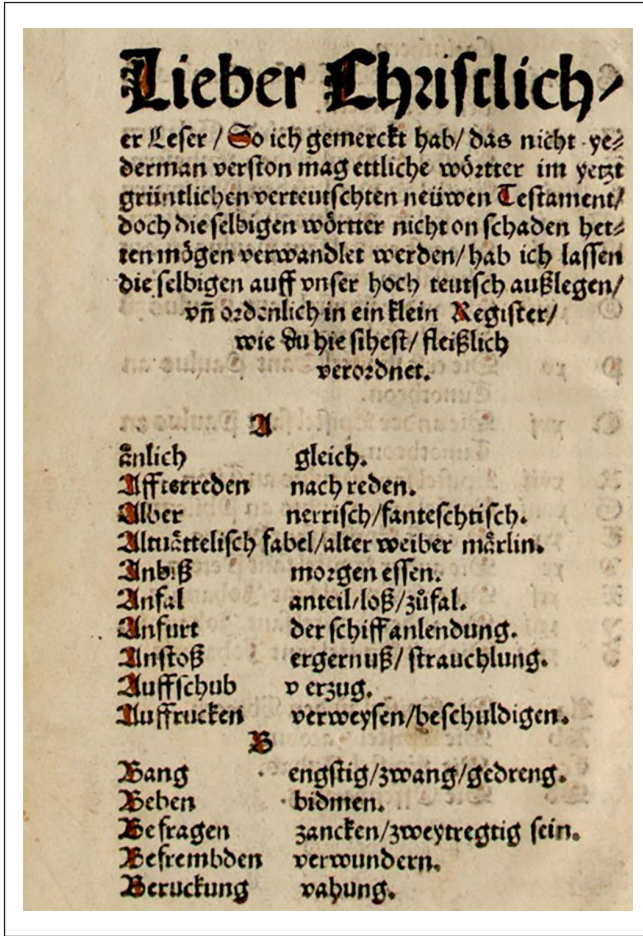 Lieber Christlich/
er Leser / So ich gemerckt hab/ das nicht ye⸗
derman verston mag ettliche wörtter im yetzt
grüntlichen verteutschten neüwen Testament/
doch die selbigen wörtter nicht on schaden het⸗
ten mögen verwandlet werden/ hab ich lassen
die selbigen auff vnser hoch teutsch außlegen/
vñ ordenlich in ein klein Register/
wie du hie sihest/ fleißlich
verordnet.
A
änlich gleich.
Affterreden nach reden.
Alber nerrisch/fanteschtisch.
Altuåttelisch fabel/alter weiber mårlin.
Anbiß morgen essen.
Anfal anteil/loß/zůfal.
Anfurt der schiff anlendung.
Anstoß ergernuß/ strauchlung.
Auffschub verzug.
Auffrucken verweysen/beschuldigen.
B
Bang engstig/zwang/gedreng.
Beben bidmen.
Befragen zancken/zweytregtig sein.
Befrembden verwundern.
Beruckung vahung.